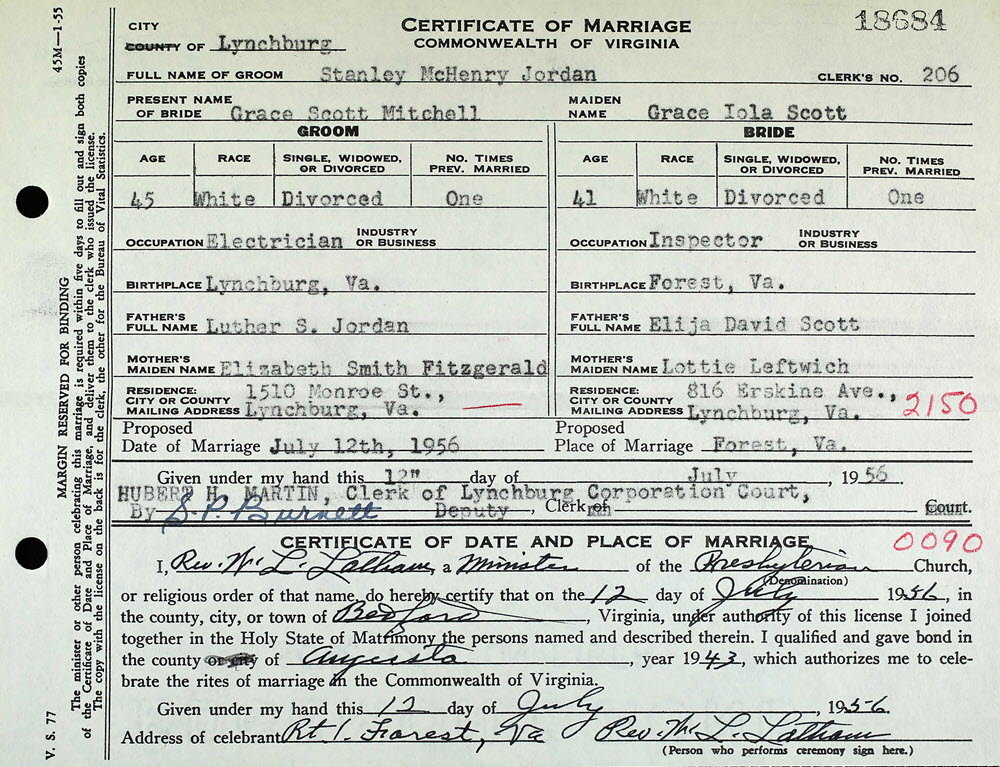 CERTIFICATE OF MARRIAGE
COMMONWEALTH OF VIRGINIA
18684
CITY
COUNTY OF Lynchburg
FULL NAME OF GROOM Stanley McHenry Jordan CLERK'S NO. 206
PRESENT NAME OF BRIDE Grace Scott Mitchell MAIDEN NAME Grace Iola Scott
GROOM BRIDE
AGE RACE SINGLE, WIDOWED, OR DIVORCED NO. TIMES PREV. MARRIED AGE RACE SINGLE, WIDOWED, OR DIVORCED NO. TIMES PREV. MARRIED
45 White Divorced One 41 White Divorced One
OCCUPATION Electrician INDUSTRY OR BUSINESS OCCUPATION Inspector INDUSTRY OR BUSINESS
BIRTHPLACE Lynchburg, Va. BIRTHPLACE Forest, Va.
FATHER'S FULL NAME Luther S. Jordan FATHER'S FULL NAME Elija David Scott
MOTHER'S MAIDEN NAME Elizabeth Smith Fitzgerald MOTHER'S MAIDEN NAME Lottie Leftwich
RESIDENCE: 1510 Monroe St., RESIDENCE: 816 Erskine Ave.,
CITY OR COUNTY CITY OR COUNTY 2150
MAILING ADDRESS Lynchburg, Va. MAILING ADDRESS Lynchburg, Va.
Proposed Proposed
Date of Marriage July 12th, 1956 Place of Marriage Forest, Va.
Given under my hand this 12" day of July, 1956
HUBERT H. MARTIN, Clerk of Lynchburg Corporation Court,
By S. P. Burnett Deputy, Clerk of Court.
CERTIFICATE OF DATE AND PLACE OF MARRIAGE 0090
I, Rev. Wm. L. Latham, a Minister of the Presbyterian Church,
(Denomination)
or religious order of that name, do hereby certify that on the 12 day of July 1956, in
the county, city, or town of Bedford, Virginia, under authority of this license I joined
together in the Holy State of Matrimony the persons named and described therein. I qualified and gave bond in
the county or city of Augusta, year 1943, which authorizes me to cele-
brate the rites of marriage in the Commonwealth of Virginia.
Given under my hand this 12 day of July, 1956.
Address of celebrant Rt. 1. Forest, Va Rev. Wm. L. Latham
(Person who performs ceremony sign here.)
45M—1-55
MARGIN RESERVED FOR BINDING
The minister or other person celebrating this marriage is required within five days to fill out and sign both copies
of the Certificate of Date and Place of Marriage, and deliver them to the clerk who issued the license.
The copy with the license on the back is for the clerk, the other for the Bureau of Vital Statistics.
V. S. 77